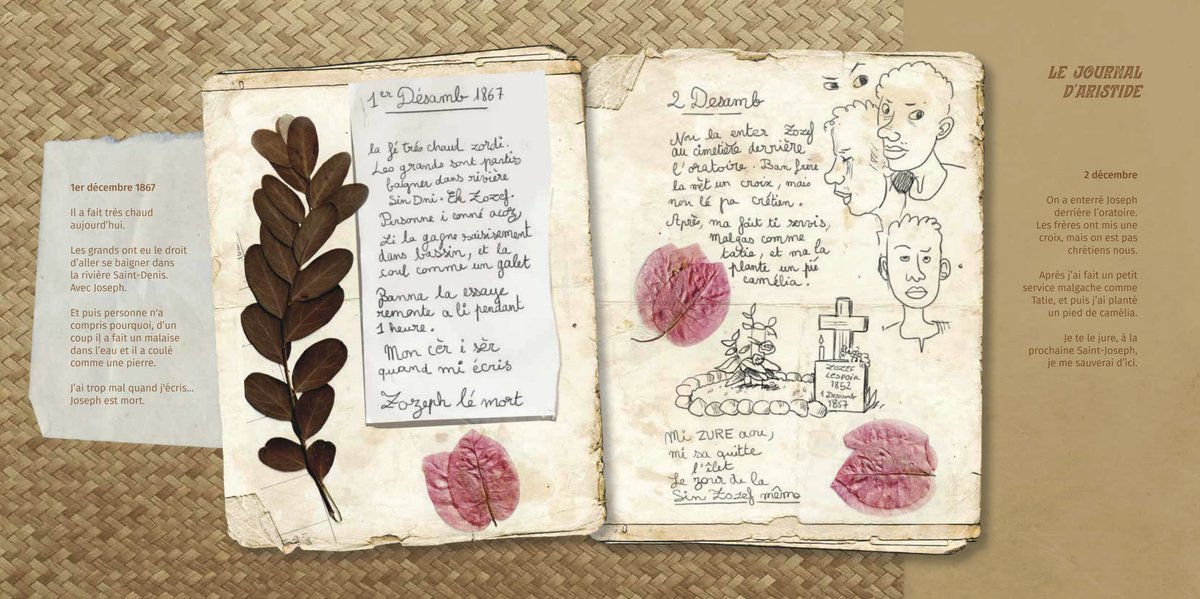 1er décembre 1867
Il a fait très chaud
aujourd'hui.
Les grands ont eu le droit
d'aller se baigner dans
la rivière Saint-Denis.
Avec Joseph.
Et puis personne n'a
compris pourquoi, d'un
coup il a fait un malaise
dans l'eau et il a coulé
comme une pierre.
J'ai trop mal quand j'écris...
Joseph est mort.
1er Désamb 1867
la fé trés chaud zordi.
Les grands sont partis
baigner dans rivière
Sin Dni. Ek Zozef.
Personne i conné acoz,
Li la gagne saisisement
dans bassin, et la
coul comme un galet
Banna la essaye
remonte a li pendant
1 heure.
Mon cèr i sèr
quand mi écris
Zozeph lé mort
2 Desamb
Nou la enter Zozef
au cimetière derrière
l'oratoire. Ban frère
la mèt un croix, mais
nou lé pa crétien.
Après, ma fait ti servis,
malgas comme
tatie, et ma la
plante un pié
camélia.
ZOZEF
LESPOIR
1852
1 Desamb
1867
Mi ZURE aou,
mi sa quitte
l'îlet
Le zour de la
Sin Zozef mêmo
LE JOURNAL
D'ARISTIDE
2 décembre
On a enterré Joseph
derrière l'oratoire.
Les frères ont mis une
croix, mais on est pas
chrétiens nous.
Après j'ai fait un petit
service malgache comme
Tatie, et puis j'ai planté
un pied de camélia.
Je te le jure, à la
prochaine Saint-Joseph,
je me sauverai d'ici.